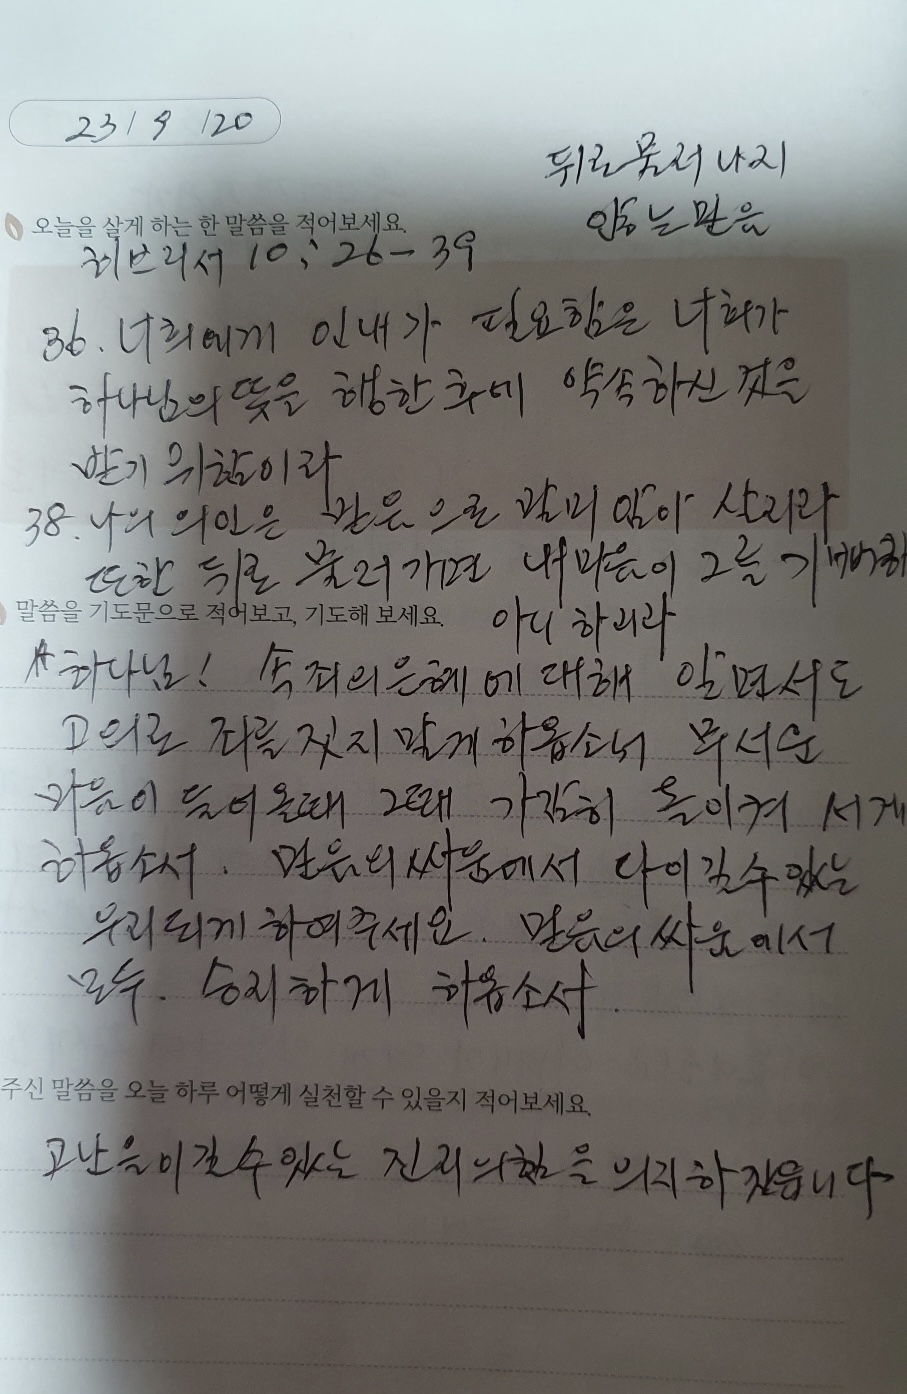 23 / 9 / 20
뒤로 물러나지
않는 믿음
오늘을 살게 하는 한 말씀을 적어보세요.
히브리서 10 : 26 - 39
36. 너희에게 인내가 필요함은 너희가
하나님의 뜻을 행한 후에 약속하신 것을
받기 위함이라
38. 나의 의인은 믿음으로 말미암아 살리라
또한 뒤로 물러가면 내 마음이 그를 기뻐하
말씀을 기도문으로 적어보고, 기도해 보세요.
아니하리라
하나님! 속죄의 은혜에 대해 알면서도
고의로 죄를 짓지 말게 하옵소서 무서운
마음이 들어올때 그때 가감히 돌이켜 서게
하옵소서. 믿음의 싸움에서 다 이길수 있는
우리 되게 하여주세요. 믿음의 싸움에서
모두. 승리하게 하옵소서.
주신 말씀을 오늘 하루 어떻게 실천할 수 있을지 적어보세요.
고난을 이길수 있는 진리의 힘을 의지하겠읍니다